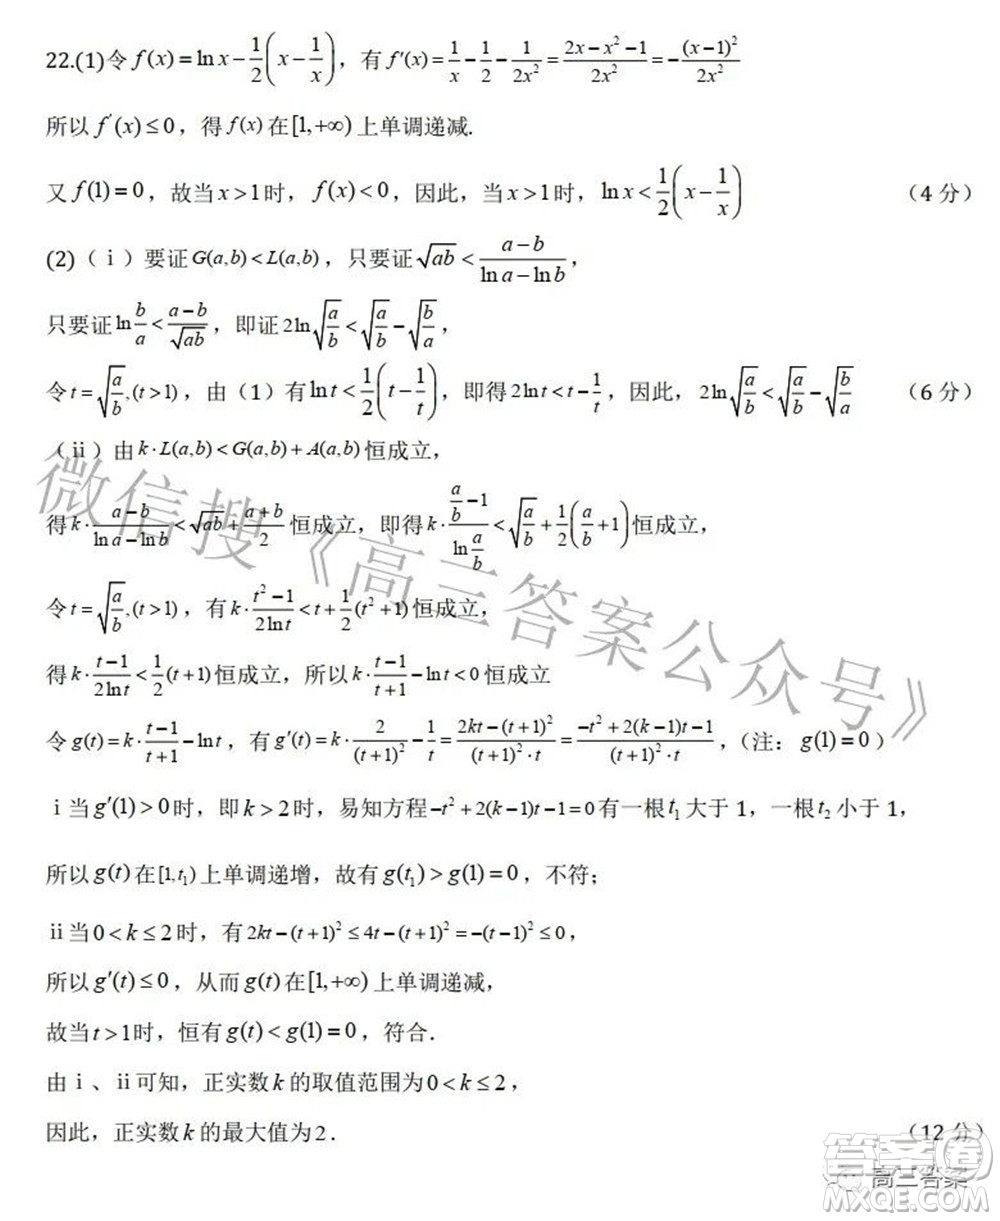 22.(1)令 f(x)=ln x−1/2(x−1/x)，有 f′(x)=1/x−1/2−1/(2x²)=(2x−x²−1)/(2x²)=−(x−1)²/(2x²)
所以 f′(x)≤0，得 f(x) 在[1,+∞) 上单调递减.
又 f(1)=0，故当 x>1 时， f(x)<0，因此，当 x>1 时，ln x<1/2(x−1/x) （4 分）
(2)（ⅰ）要证 G(a,b)<L(a,b)，只要证 √(ab)<(a−b)/(ln a−ln b)，
只要证 ln(b/a)<(a−b)/√(ab)，即证 2ln√(a/b)<√(a/b)−√(b/a)，
令 t=√(a/b),(t>1)，由（1）有 ln t<1/2(t−1/t)，即得 2ln t<t−1/t，因此，2ln√(a/b)<√(a/b)−√(b/a) （6 分）
（ⅱ）由 k·L(a,b)<G(a,b)+A(a,b) 恒成立，
得 k·(a−b)/(ln a−ln b)<√(ab)+(a+b)/2 恒成立，即得 k·(a/b−1)/ln(a/b)<√(a/b)+1/2(a/b+1) 恒成立，
令 t=√(a/b),(t>1)，有 k·(t²−1)/(2ln t)<t+1/2(t²+1) 恒成立，
得 k·(t−1)/(2ln t)<1/2(t+1) 恒成立，所以 k·(t−1)/(t+1)−ln t<0 恒成立
令 g(t)=k·(t−1)/(t+1)−ln t，有 g′(t)=k·2/(t+1)²−1/t=(2kt−(t+1)²)/((t+1)²·t)=(−t²+2(k−1)t−1)/((t+1)²·t)，（注： g(1)=0）
ⅰ当 g′(1)>0 时，即 k>2 时，易知方程 −t²+2(k−1)t−1=0 有一根 t₁ 大于 1，一根 t₂ 小于 1，
所以 g(t) 在[1,t₁) 上单调递增，故有 g(t₁)>g(1)=0，不符；
ⅱ当 0<k≤2 时，有 2kt−(t+1)²≤4t−(t+1)²=−(t−1)²≤0，
所以 g′(t)≤0，从而 g(t) 在[1,+∞) 上单调递减，
故当 t>1 时，恒有 g(t)<g(1)=0，符合．
由ⅰ、ⅱ可知，正实数 k 的取值范围为 0<k≤2，
因此，正实数 k 的最大值为 2． （12 分）
微信搜《高三答案公众号》
答案圈
高三答案
MXQE.COM